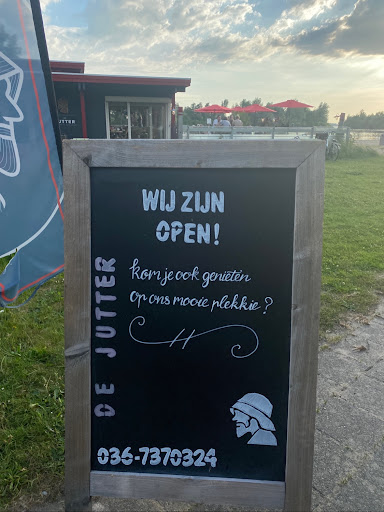 JUTTER
WIJ ZIJN
OPEN!
kom je ook genieten
op ons mooie plekkie?
DE JUTTER
036-7370324